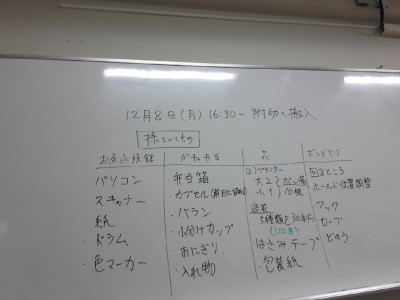 12月8日(月) 16:30~ 附幼へ搬入
持っていくもの
お魚水族館
・パソコン
・スキャナー
・紙
・ドラム
・色マーカー
ガチャ弁当
・弁当箱
・カプセル
・バラン
・小分けカップ
・おにぎり
・入れ物
花
プランター
大2
小1
造花
5種類を30本
・はさみ テープ
・包装紙
ボルダリング
・回るところ
・ホールド位置調整
・フック
・ロープ
・どのう